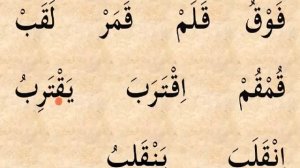 فَوْقُ قَلَمْ قَمَرْ لَقَبْ
قُمْقُمْ اِقْتَرَبَ يَقْتَرِبُ
اِنْقَلَبَ يَنْقَلِبُ